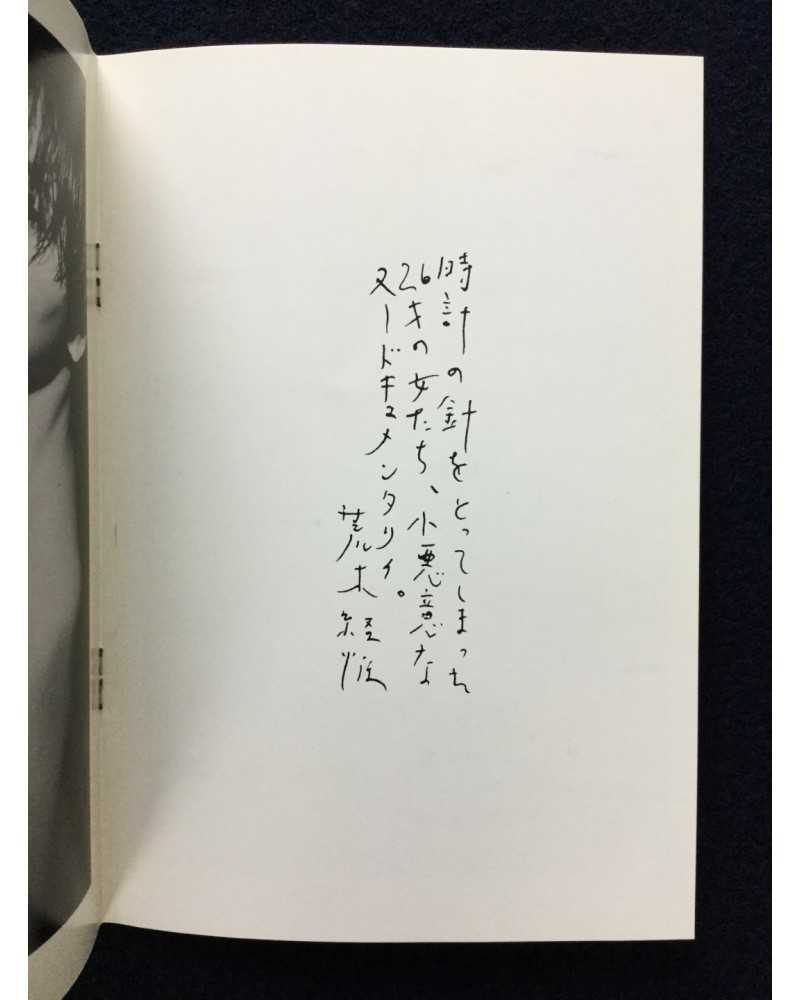 時計の針をとってしまった
26才の女たち、小悪意な
ヌードキュメンタリィ。
荒木経惟